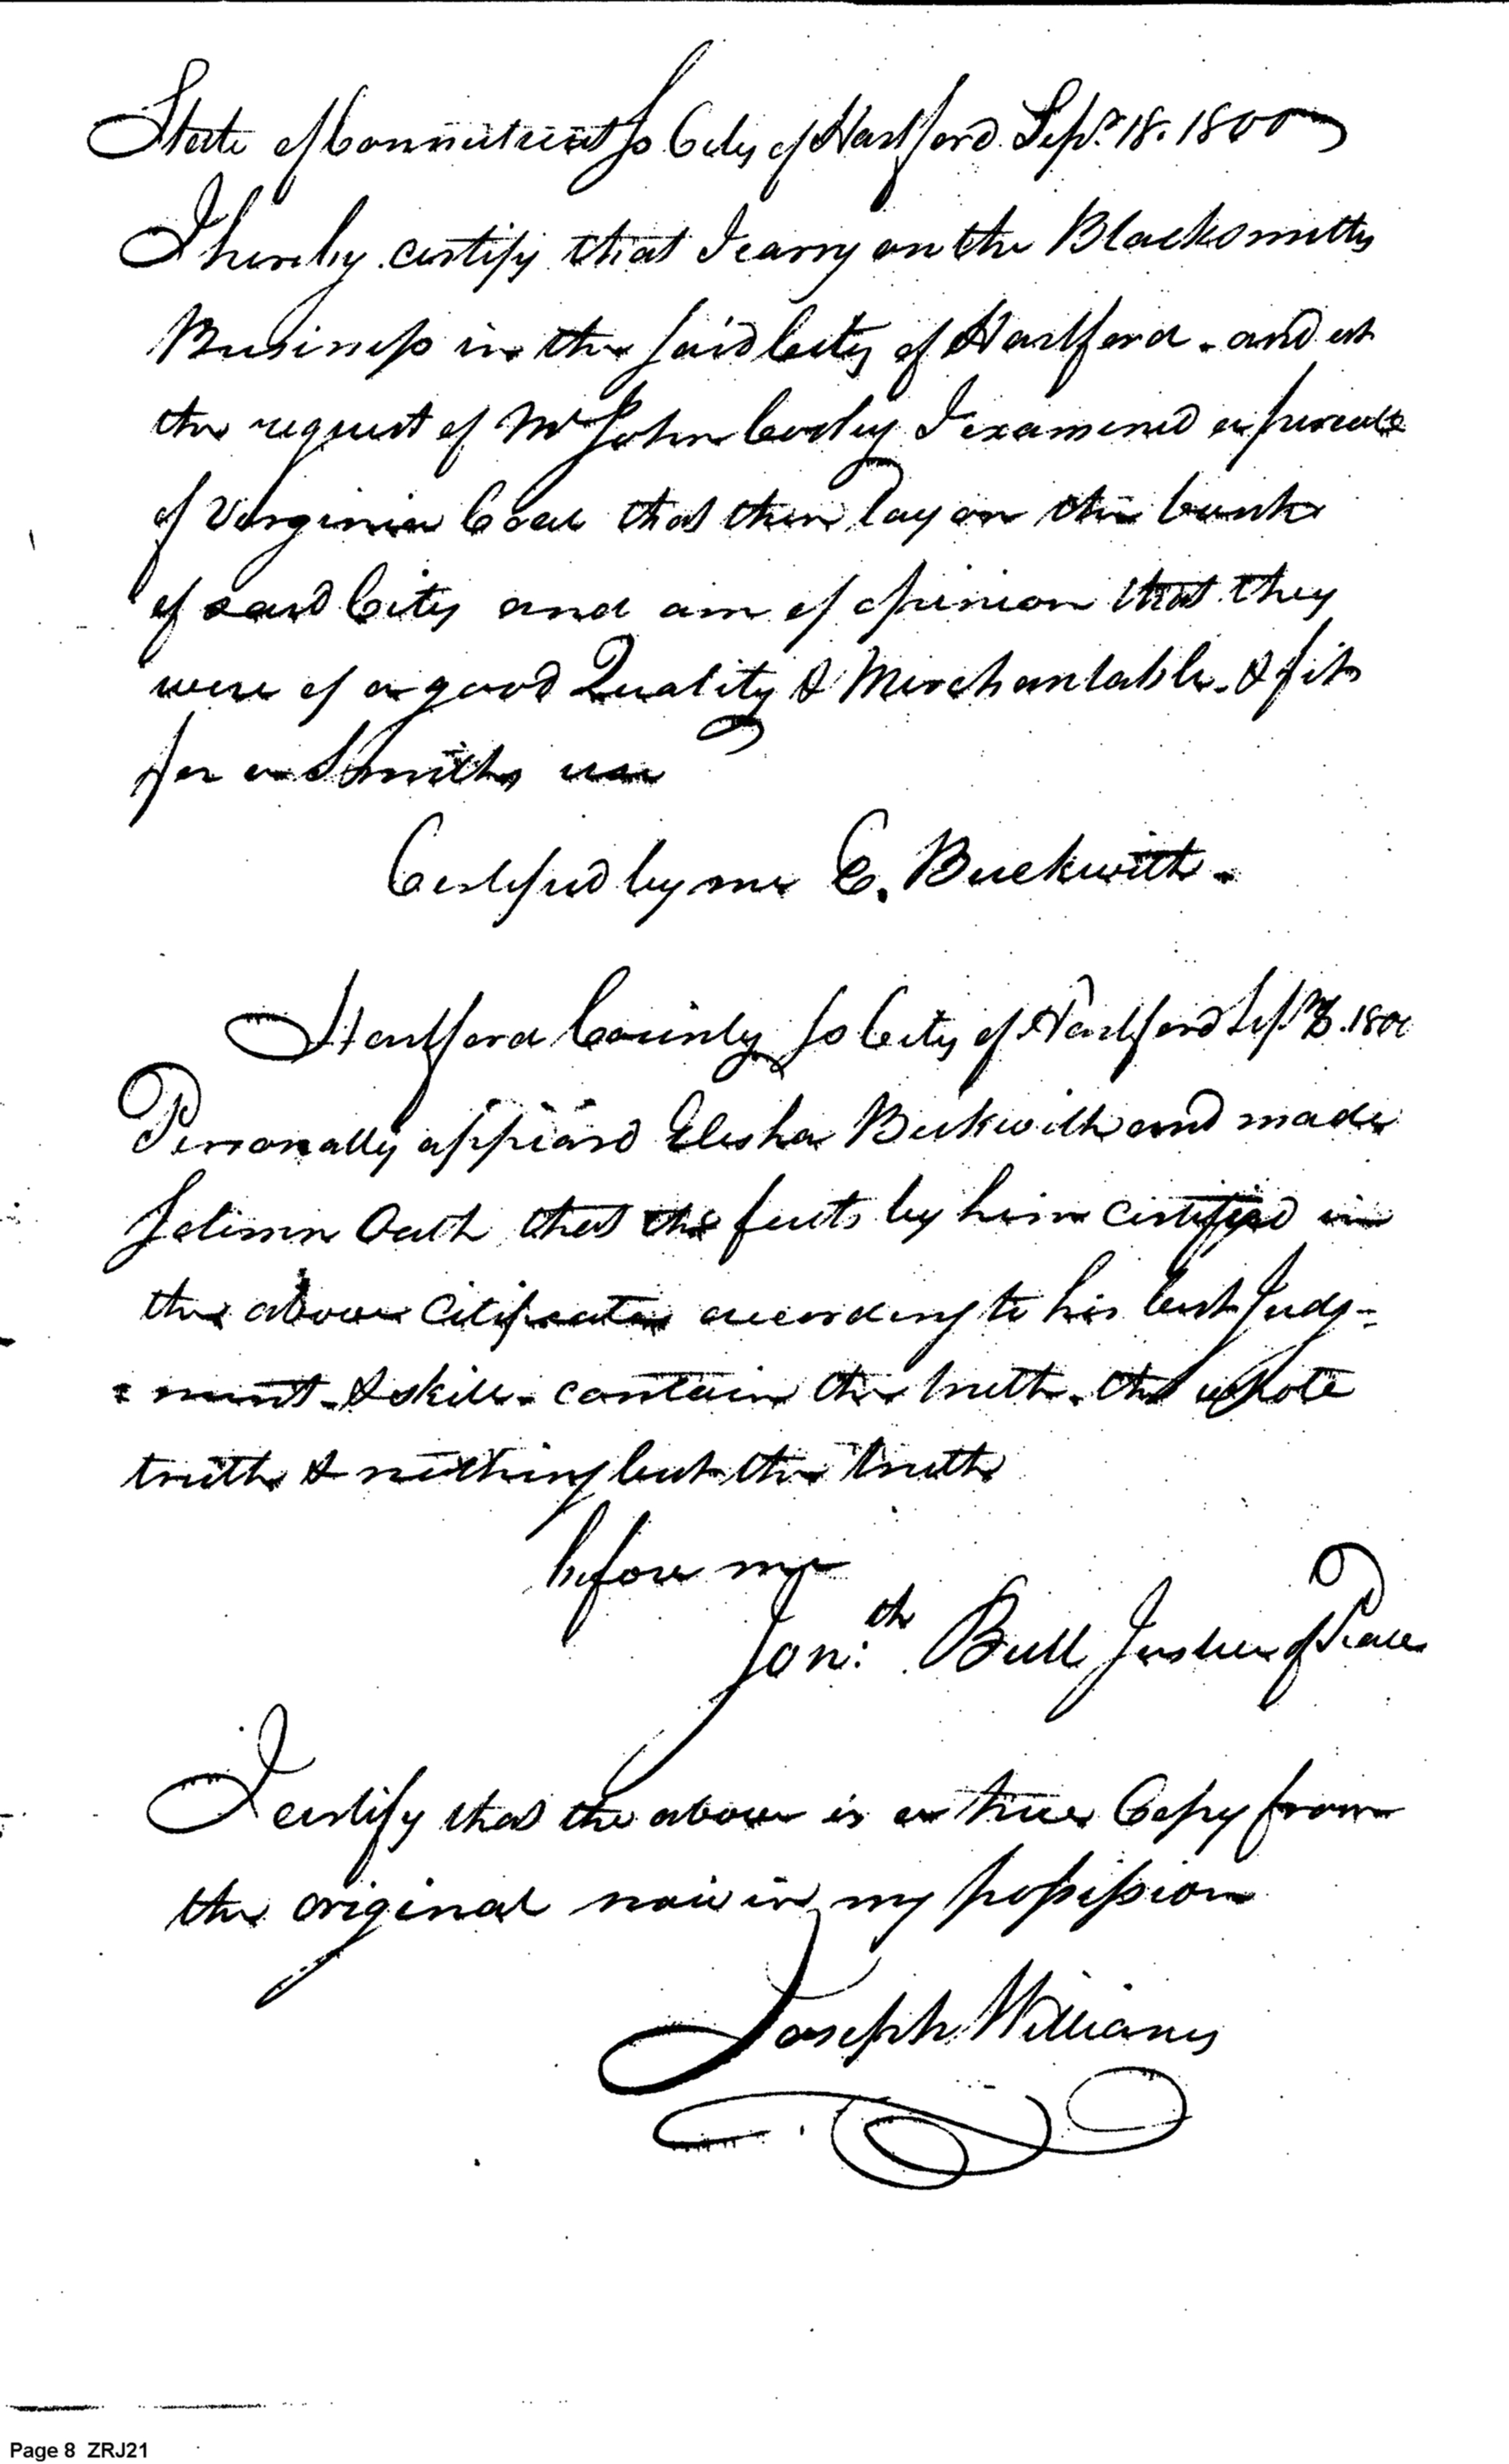 State of Connecticut Ss City of Hartford Sepr. 18. 1800
I hereby certify that I carry on the Blacksmiths
Business in the said City of Hartford. and at
the request of Mr John Cooley I examined a
of Virginia Coal that then lay on the bank
of said City and am of opinion that they
were of a good Quality & Merchantable. & fit
for a Smiths use
Certifid by me E. Beckwith.
Hartford County Ss City of Hartford Sepr 18. 1800
Personally appeard Elisha Beckwith and made
Solemn Oath that the facts by him certifyed in
the above Citificate according to his best Judg=
=ment. & skill. contain the truth. the whole
truth & nothing but the truth
before me
Jon:th Bull Justice of Peace
I certify that the above is a true Copy from
the original now in my possession
Joseph Williams
Page 8 ZRJ21